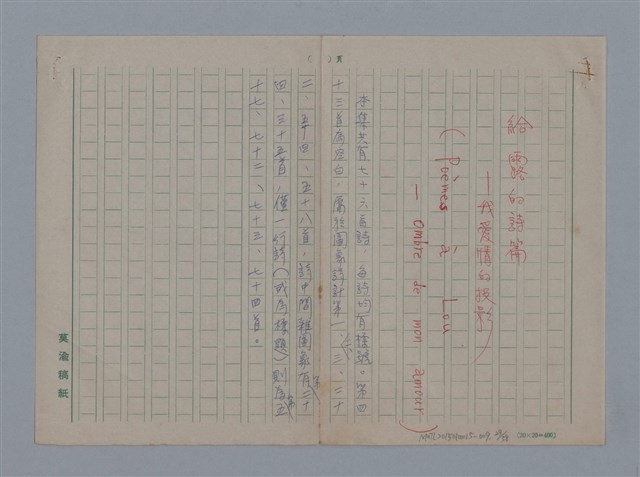 給露的詩篇
—我愛情的投影
(Poèmes à Lou
— Ombre de mon amour)
本集共有七十六首詩,每詩均有標號。第四
十三首為空白,屬於圖象詩計第一、三、三十
二、五十四、五十八首,詩中間雜圖象有第三十
四、三十五首,僅一行詩(或為標題)則為第五
十七、七十二、七十三、七十四首。
頁
莫渝稿紙
(20×20=400)